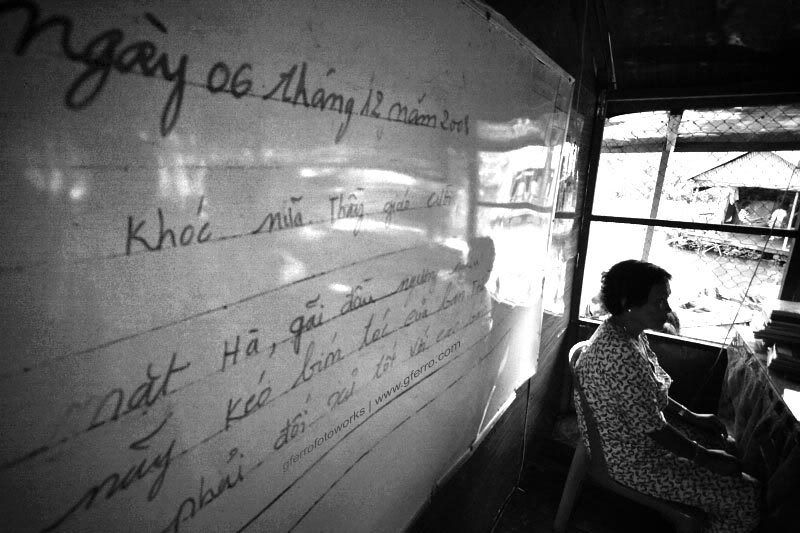 ngày 06 tháng 12 năm 2008
Khóc nữa Thầy giáo cười
mặt Hà, gãi đầu ngượng
nẩy kéo bím tóc của bạn
phải đối xử tốt với
gferrofotoworks | www.gferro.com